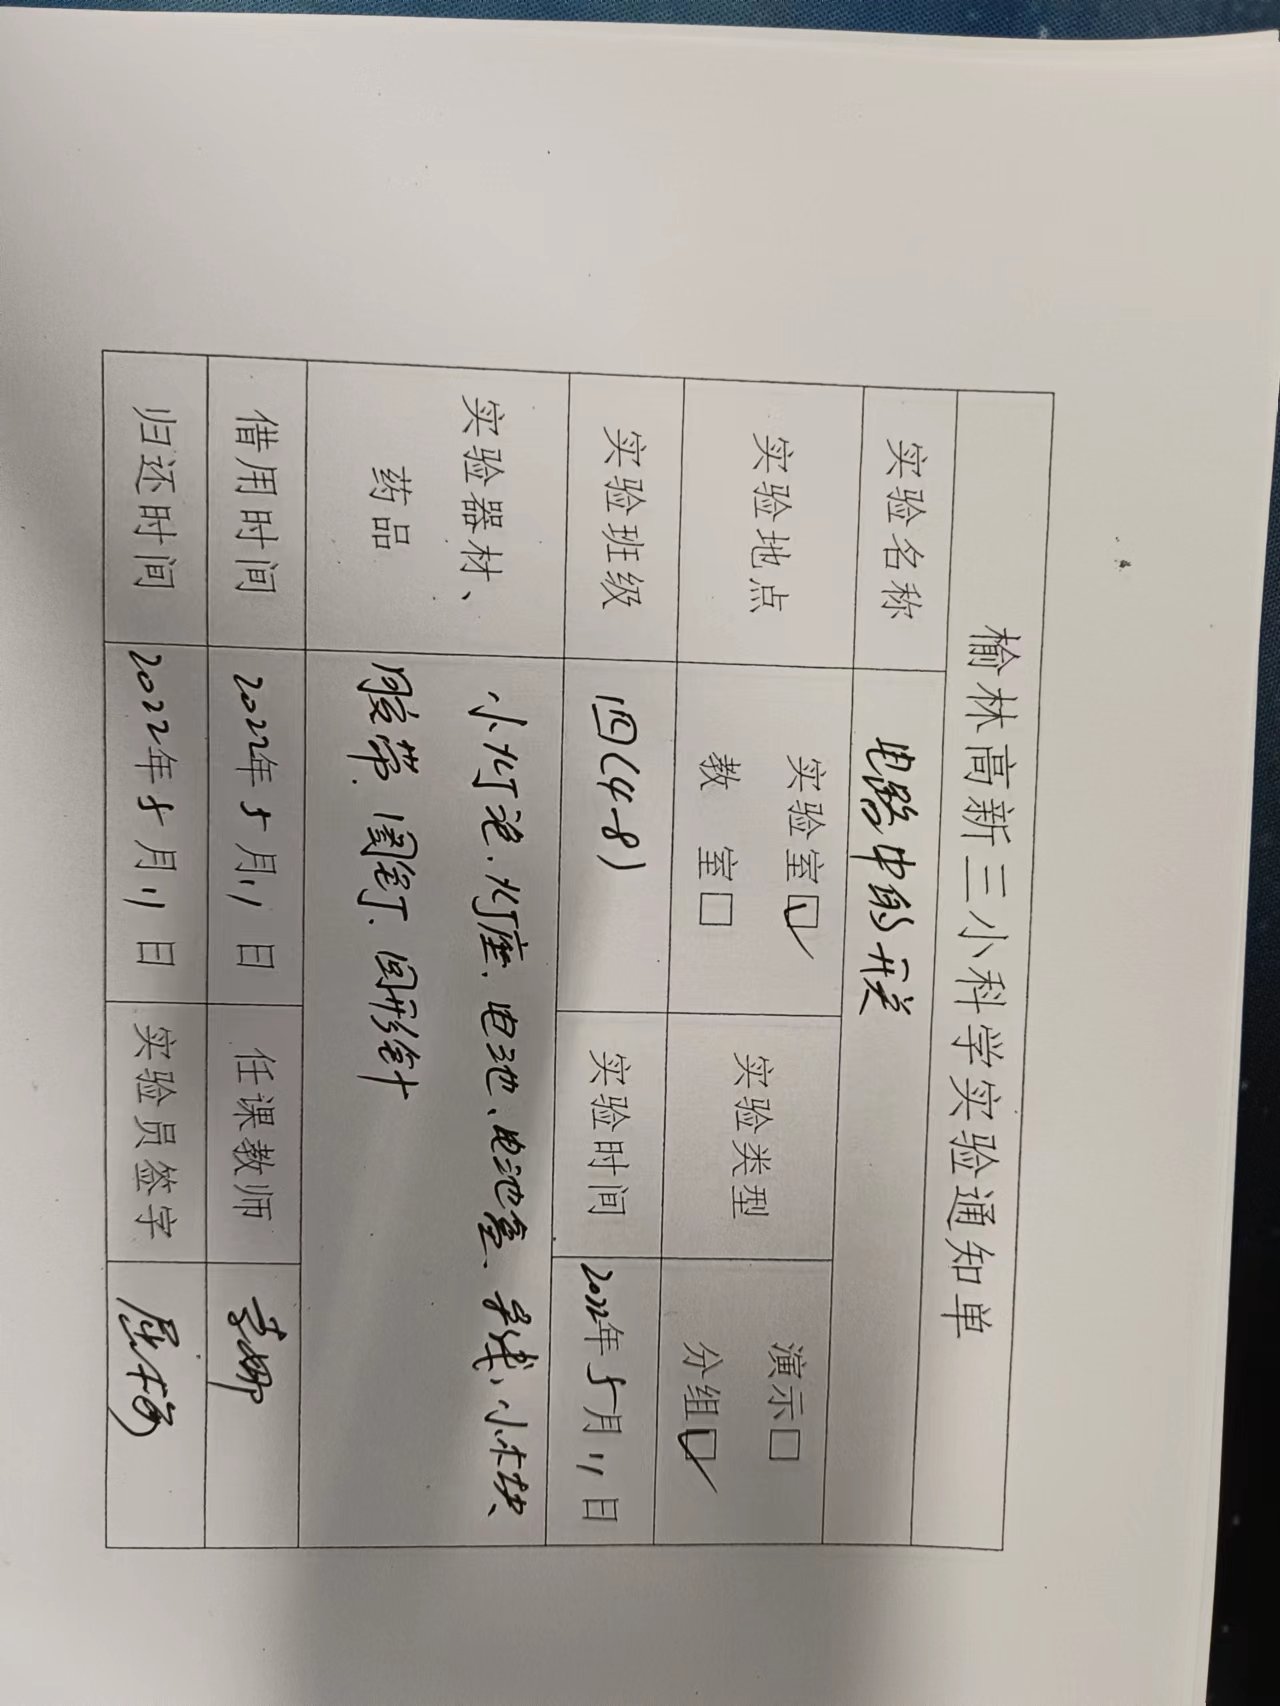 榆林高新三小科学实验通知单
实验名称 电路中的开关
实验地点 实验室☑ 教 室□ 实验类型 演示□ 分组☑
实验班级 四(4-8) 实验时间 2022年5月11日
实验器材、药品 小灯泡、灯座、电池、电池盒、导线、小木块、
胶带、图钉、回形针
借用时间 2022年5月11日 任课教师
归还时间 2022年5月11日 实验员签字